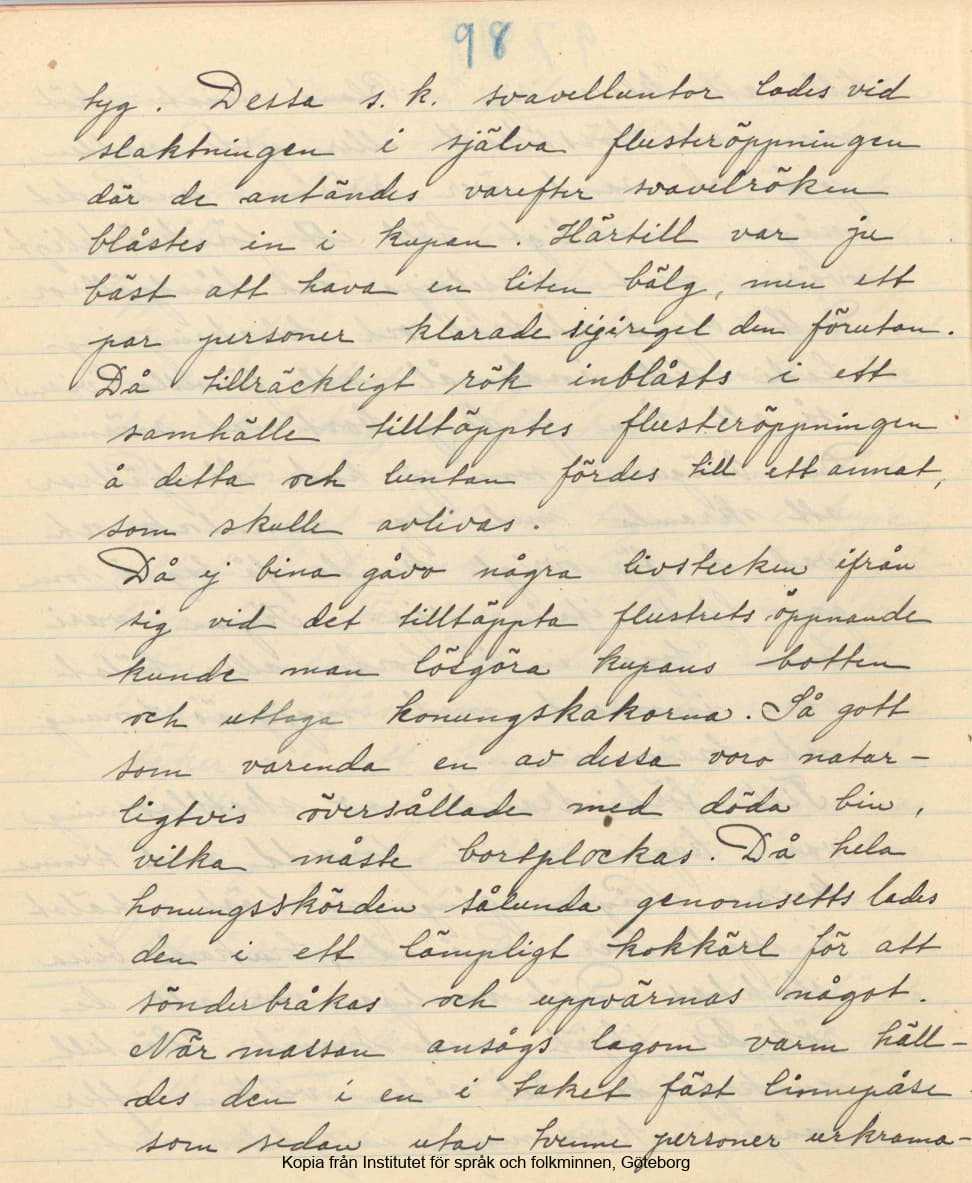 98
tyg. Dessa s. k. svavelluntor lades vid
slaktningen i själva flusteröppningen
där de antändes varefter svavelröken
blåstes in i kupan. Härtill var ju
bäst att hava en liten bälg, men ett
par personer klarade sig i regel den förutan.
Då tillräckligt rök inblåsts i ett
samhälle tilltäpptes flusteröppningen
å detta och luntan fördes till ett annat,
som skulle avlivas.
Då ej bina gåvo några livstecken ifrån
sig vid det tilltäppta flustrets öppnande
kunde man lösgöra kupans botten
och uttaga honungskakorna. Så gott
som varenda en av dessa voro natur-
ligtvis översållade med döda bin,
vilka måste bortplockas. Då hela
honungsskörden sålunda genomsetts lades
den i ett lämpligt kokkärl för att
sönderbråkas och uppvärmas något.
När massan ansågs lagom varm häll-
des den i en i taket fäst linnepåse
som sedan utav tvenne personer urkrama-
Kopia från Institutet för språk och folkminnen, Göteborg